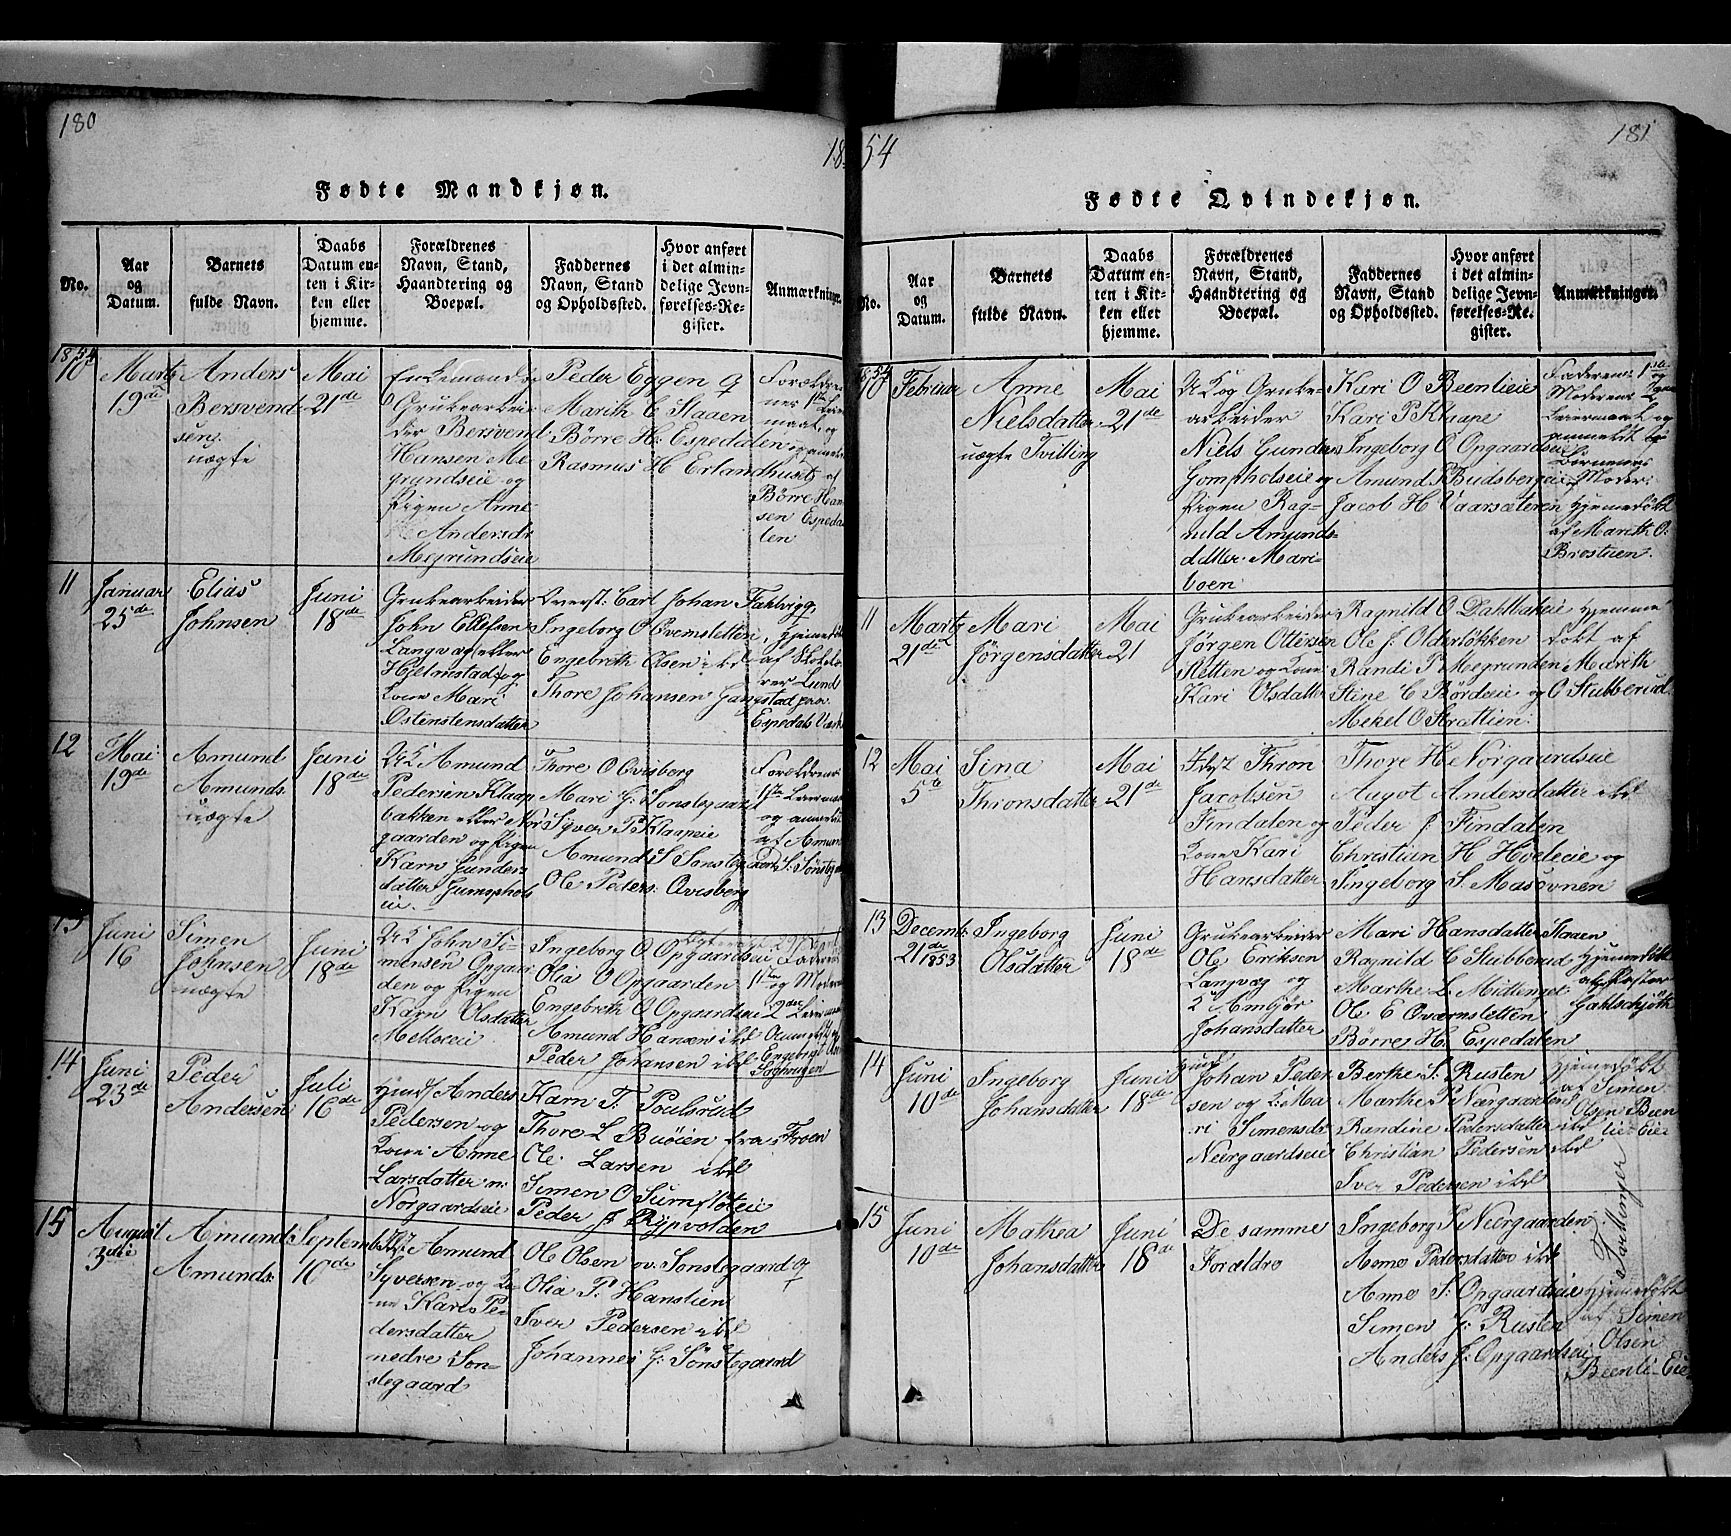 180
18
Fødte Mandkjøn.
No.
Aar
og
Datum.
Barnets
fulde Navn.
Daabs
Datum en-
ten i Kir-
ken eller
hjemme.
Forældrenes
Navn, Stand,
Haandtering og
Boepæl.
Faddernes
Navn, Stand
og Opholdssted.
Hvor anført
i det almin-
delige Jevn-
førelses-Re-
gister.
Anmærkninger
1854
10
Martz
19de
Anders
Bersvend
sen
uægte
Mai
21de
Enkemand
Grubearbei
der Bersvend
Hansen Me
grundseie og
Pigen Anne
Andersdr
Megrundseie
Peder Eggen
Marith C Staaen
Børre H. Espedalen
Rasmus H Erlandhuset
Foræld
nes 1ste Leier
maal og
anmeldt
af
Børre Han
sen Espeda
len
11
Januar
25de
Elias
Johnsen
Juni
18de
Grubearbeider
John Ellefsen
Langvag eller
Hjelmstad og
Kone Mari
Ostenstensdatter
Carl Johan Fahlvig
Ingeborg O Qvernsletten
Engebreth Olsen ibd
Thore Johansen Hangstad paa
Hjemmedøbt
af
Lund
Espedals Værk
12
Mai
19de
Amund
Amunds.
uægte
Juni
18de
UK Amund
Pedersen Klaap
bakken eller Nor
gaarden og Pigen
Karn Gunders
datter Gumphols
eie.
Thore O Ovisberg
Mari G. Sønstegaard
Syver P. Klaapeie
Amund S Sønstegaard
Ole Peders. Ovisberg
Forældrenes
1ste Leiermaal
og anmeldt
af Amund
S. Sønsteg
13
Juni
16
Simen
Johnsen
uægte
Juni
18de
UK John Si-
mensen Opgaar
den og Pigen
Karn Olsdatter
Melloeie
Ingeborg O Opgaardseie
Olia O Opgaarden
Engebreth O Opgaardseie
Amund Hansen ibd
Peder Johansen ibd
Faderens
1ste og Moderens
2det Leiermaal
Anmeldt af
Engebrgt
14
Juni
23de
Peder
Andersen
Juli
16de
Huusmd Anders
Pedersen og
Kone Anne
Larsdatter n:
Norgaardseie
Karn T. Poulsrud
Thore L Buøien fra Froen
Ole Larsen ibd
Simen O Surnfløteie
Peder J Rypvolden
15
August
3die
Amund
Amunds.
September
10de
Amund
Syversen og Ko-
ne Kari Pe
dersdatter
nedre Søn-
stegaard
Ole Olsen ov. Sønstegaard
Olia P. Hanstien
Iver Pedersen ibd
Johannes G. Sønstegaard
54
181
Fødte Qvindekjøn.
No.
Aar
og
Datum.
Barnets
fulde Navn.
Daabs
Datum en-
ten i Kir-
ken eller
hjemme.
Forældrenes
Navn, Stand,
Haandtering og
Boepæl.
Faddernes
Navn, Stand
og Opholdssted.
Hvor anført
i det almin-
delige Jevn-
førelses-Re-
gister.
Anmærkninger.
1854
10
Februar
Anne
Nielsdatter
uægte Tvilling
Mai
21de
UK og Grube-
arbeider
Niels Gunders
Gompholseie og
Pigen Rag-
nild Amunds-
datter Mari-
boen
Kari O Beenlieie
Kari P Klaape
Ingeborg O Opgaardseie
Amund P Budsbergeie
Jacob H Vaarsæteren
Faderens 1ste
Moderens 2
Leiermaal og
anmeldt
Børnenes
Moder
Hjemedøbt
af Marith O.
Brostuen
11
Martz
21de
Mari
Jørgensdatter
Mai
21
Grubearbeider
Jørgen Ottersen
Sletten og Kone
Kari Olsdatter
Ragnild O Dahlbakeie
Ole J. Olderløkken
Randi P. Megrunden
Stine C Børdseie og
Mekel O Strattien
Hjemme
døbt af
Marith
O Stubberud
12
Mai
5te
Sina
Thronsdatter
Mai
21de
Thron
Jacobsen
Findalen og
Kone Kari
Hansdatter
Thore H. Norgaardseie
Augot Andersdatter ibd
Peder J Findalen
Christian H Hoeleie og
Ingeborg S. Masovnen
13
Decembr
21de
1853
Ingeborg
Olsdatter
Juni
18de
Grubearbeider
Ole Eriksen
Langvag og
K. Emhjør
Johansdatter
Mari Hansdatter Staaen
Ragnild C Stubberud
Marthe L. Midtenget
Ole E Qværnsletten
Børre H. Espedalen
Hjemedøbt
af Pastor
Gahlschjøth
14
Juni
10de
Ingeborg
Johansdatter
Juni
18de
Huusmd
Johan Peder
sen og K. Ma
ri Simensdr
Neergaardseie
Berthe S. Rusten
Marthe P Nærgaarden
Randine Pedersdatter ibd
Christian Pedersen ibd
Iver Pedersen ibd
Hjemmedøbt
af Simen
Olsen Been
lie-Eie
Tvillinger
15
Juni
10de
Mathea
Johansdatter
Juni
18de
De samme
Forældre
Ingeborg P. Neergaarden
Anne Pedersdatter ibd
Anne S. Opgaardseie
Simen J. Rusten
Anders J. Opgaardseie
Hjemedøbt
af Simen
Olsen
Beenli-Eie